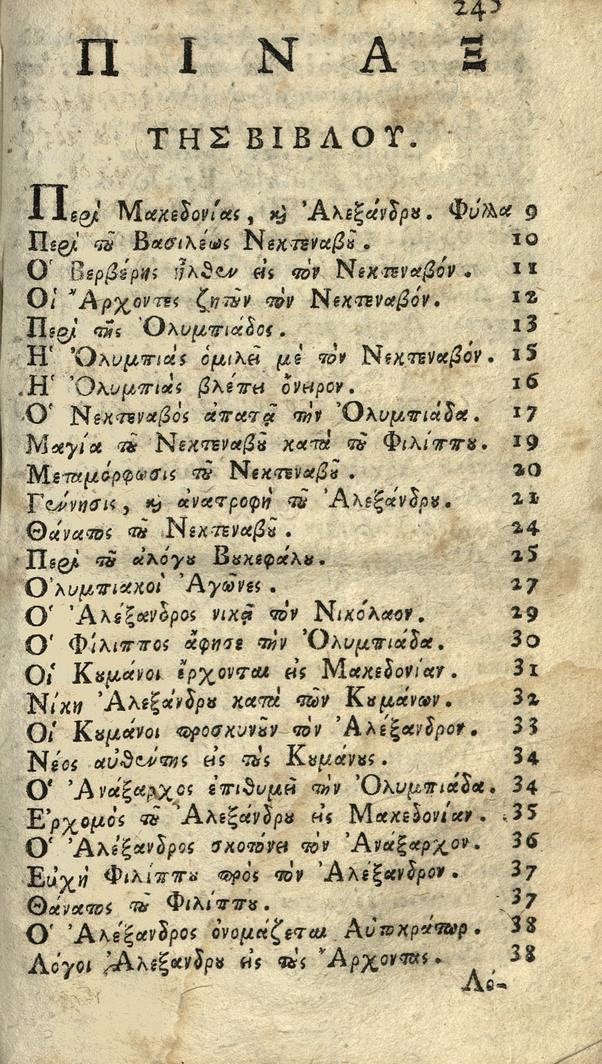 245
ΠΙΝΑΞ
ΤΗΣ ΒΙΒΛΟΥ.
Περὶ Μακεδονίας, ϗ̀ Ἀλεξάνδρȣ. Φύλλα 9
Περὶ τȣ͂ Βασιλέως Νεκτεναβȣ͂. 10
Ὁ Βερβέρης ἦλθεν εἰς τὸν Νεκτεναβόν. 11
Οἱ Ἄρχοντες ζητȣ͂ν τὸν Νεκτεναβόν. 12
Περὶ τῆς Ὀλυμπιάδος. 13
Ἡ Ὀλυμπιὰς ὁμιλεῖ μὲ τὸν Νεκτεναβόν. 15
Ἡ Ὀλυμπιὰς βλέπει ὄνειρον. 16
Ὁ Νεκτεναβὸς ἀπατᾷ τὴν Ὀλυμπιάδα. 17
Μαγία τȣ͂ Νεκτεναβȣ͂ κατὰ τȣ͂ Φιλίππȣ. 19
Μεταμόρφωσις τȣ͂ Νεκτεναβȣ͂. 20
Γέννησις, ϗ̀ ἀνατροφὴ τȣ͂ Ἀλεξάνδρȣ. 21
Θάνατος τȣ͂ Νεκτεναβȣ͂. 24
Περὶ τȣ͂ ἀλόγȣ Βȣκεφάλȣ. 25
Ὀλυμπιακοὶ Ἀγῶνες. 27
Ὁ Ἀλέξανδρος νικᾷ τὸν Νικόλαον. 29
Ὁ Φίλιππος ἄφησε τὴν Ὀλυμπιάδα. 30
Οἱ Κȣμάνοι ἔρχονται εἰς Μακεδονίαν. 31
Νίκη Ἀλεξάνδρȣ κατὰ τῶν Κȣμάνων. 32
Οἱ Κȣμάνοι προσκυνȣ͂ν τὸν Ἀλέξανδρον. 33
Νέος αὐθέντης εἰς τȣ̀ς Κȣμάνȣς. 34
Ὁ Ἀνάξαρχος ἐπιθυμεῖ τὴν Ὀλυμπιάδα. 34
Ἐρχομὸς τȣ͂ Ἀλεξάνδρȣ εἰς Μακεδονίαν. 35
Ὁ Ἀλέξανδρος σκοτόνει τὸν Ἀνάξαρχον. 36
Εὐχὴ Φιλίππȣ πρὸς τὸν Ἀλέξανδρον. 37
Θάνατος τȣ͂ Φιλίππȣ. 37
Ὁ Ἀλέξανδρος ὀνομάζεται Αὐτοκράτωρ. 38
Λόγοι Ἀλεξάνδρȣ εἰς τȣ̀ς Ἄρχοντας. 38
Λό-